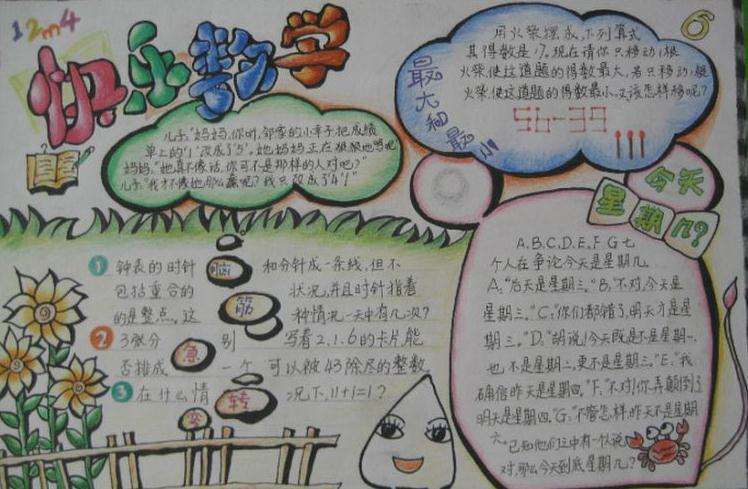 12m4
快乐数学
6
儿子:"妈妈,你听,邻家的小辛子把成绩
单上的'1'改成了'5',她妈妈正在狠狠地骂他
妈妈:"她真不像话,你可不是那样的人对吧?"
儿子:"我才不像他那么蠢呢?我只改成了'4'!"
最大和最小
用火柴摆成下列算式
其得数是17,现在请你只移动1根
火柴,使这道题的得数最大,若只移动1根
火柴,使这道题的得数最小,又该怎样移呢?
56-39
脑筋急转
1 钟表的时针和分针成一条线,但不
包括重合的状况,并且时针指着
的是整点。这种情况一天中有几次?
2 3张分别写着2.1.6的卡片,能
否排成一个可以被43除尽的整数
3 在什么情况下,11+1=1?
今天
星期几?
A.B.C.D.E.F.G七
个人在争论今天是星期几
A."后天是星期三。"B."不对,今天是
星期三。"C."你们都错了,明天才是星
期三。"D."胡说!今天既是不是星期一,
也不是星期二,更不是星期三。"E."我
确信昨天是星期四。"F."不对!你弄颠倒了
明天是星期四。"G."不管怎样昨天不是星期
六。"已知他们之中有一个说
对,那么今天到底星期几?